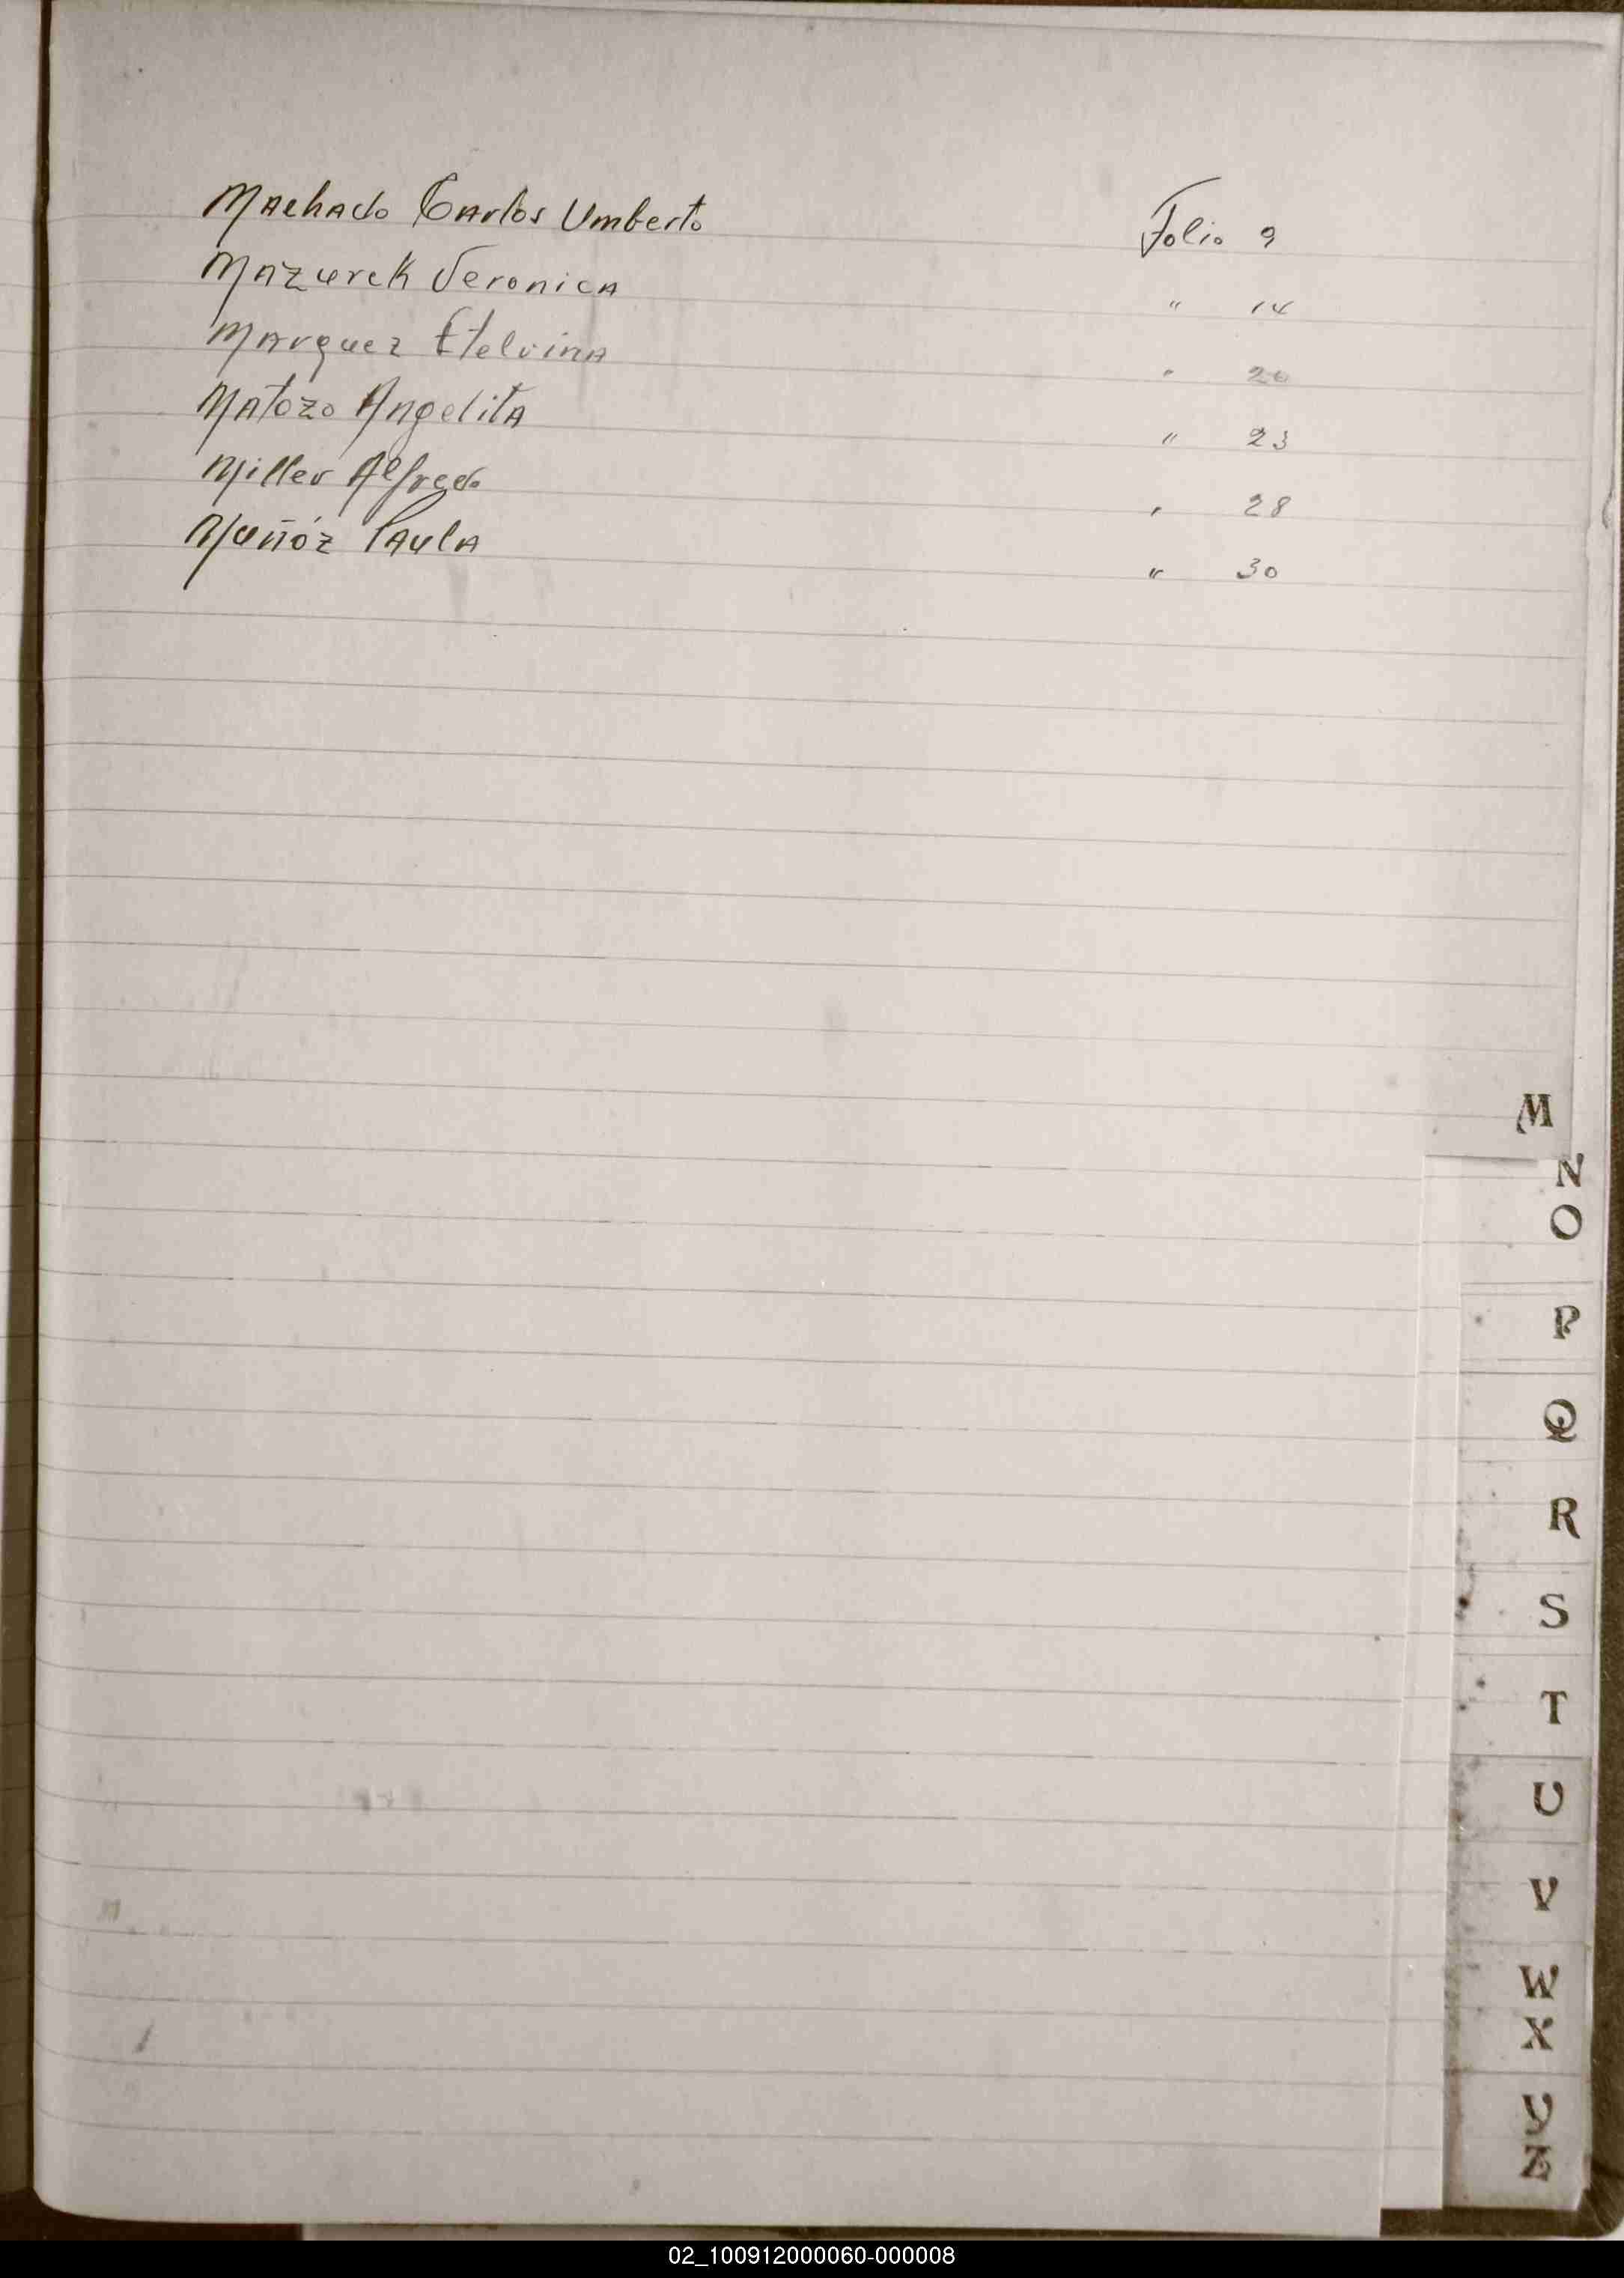 Machado Carlos Umberto Folio 9
Mazurek Veronica " 14
Marquez Etelvina " 20
Matozo Angelita " 23
Miller Alfredo " 28
Muñóz Paula " 30
M
N
O
P
Q
R
S
T
U
V
W
X
Y
Z
02_100912000060-000008